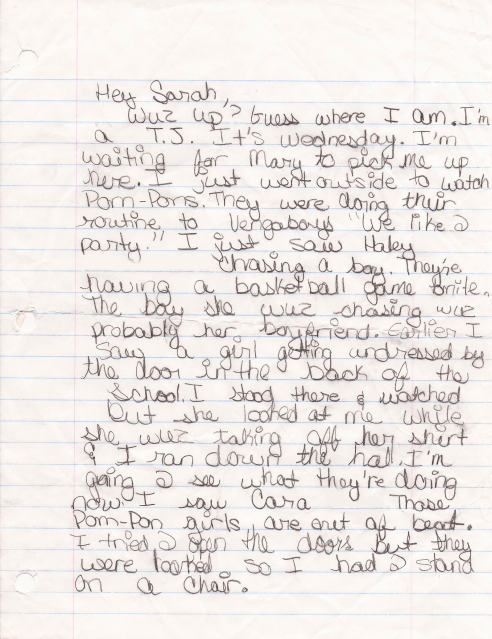 Hey Sarah,
Wuz up? Guess where I am. I'm
a T.J. It's Wednesday. I'm
waiting for Mary to pick me up
here. I just went outside to watch
Pom-Pons. They were doing their
routine to Vengaboys "We like 2
party." I just saw Haley
chasing a boy. They're
having a basketball game tonite.
The boy she wuz chasing wuz
probably her boyfriend. Earlier I
saw a girl getting undressed by
the door in the back of the
School. I stood there & watched
but she looked at me while
she wuz taking off her shirt
& I ran down the hall. I'm
going 2 see what they're doing
now. I saw Cara Those
Pom-Pon girls are out of beat.
I tried 2 open the doors but they
were locked so I had 2 stand
on a chair.